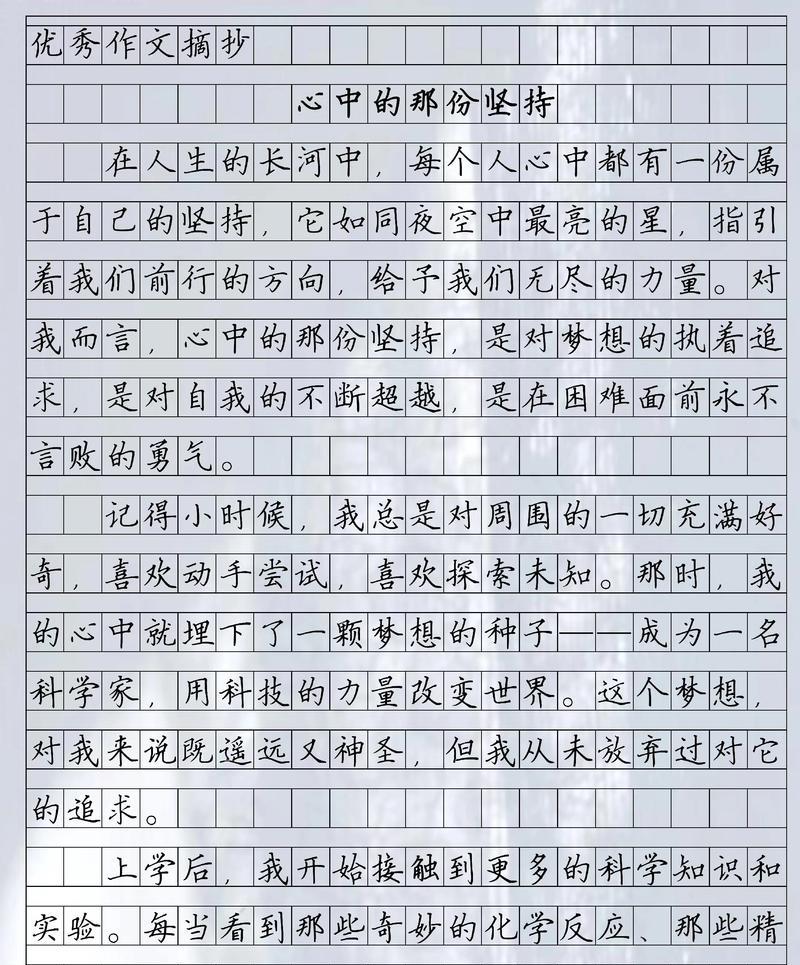 优秀作文摘抄
心中的那份坚持
在人生的长河中，每个人心中都有一份属
于自己的坚持，它如同夜空中最亮的星，指引
着我们前行的方向，给予我们无尽的力量。对
我而言，心中的那份坚持，是对梦想的执着追
求，是对自我的不断超越，是在困难面前永不
言败的勇气。
记得小时候，我总是对周围的一切充满好
奇，喜欢动手尝试，喜欢探索未知。那时，我
的心中就埋下了一颗梦想的种子——成为一名
科学家，用科技的力量改变世界。这个梦想，
对我来说既遥远又神圣，但我从未放弃过对它
的追求。
上学后，我开始接触到更多的科学知识和
实验。每当看到那些奇妙的化学反应、那些精